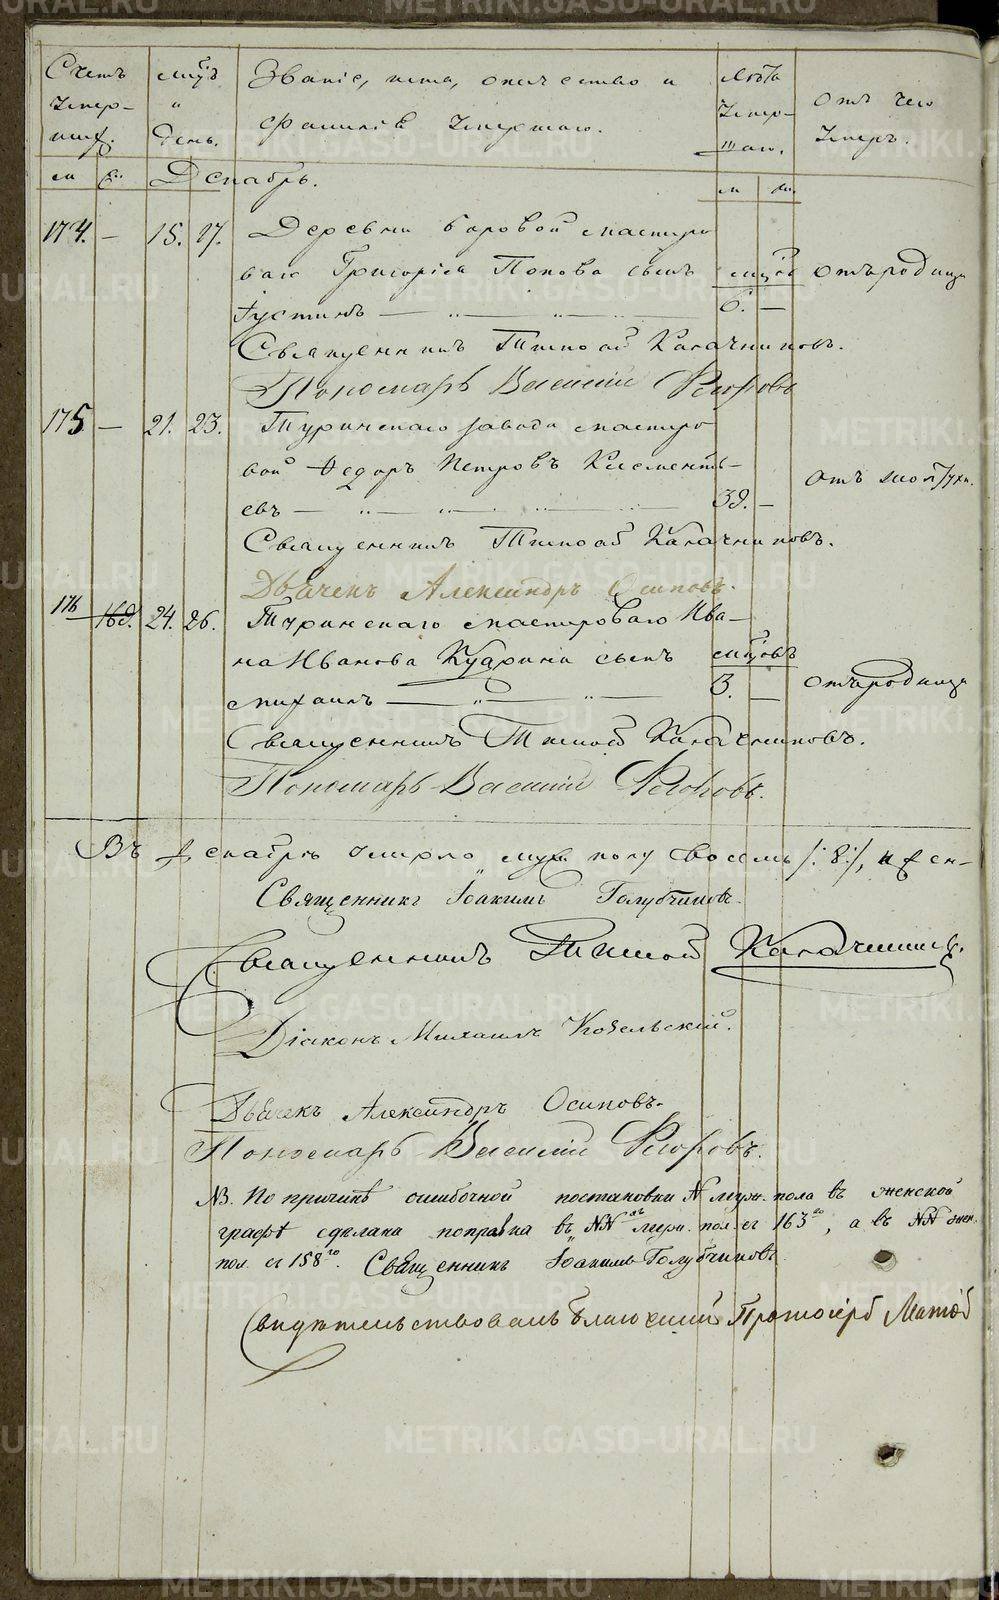 Счетъ мцъ Званіе, имя, отечество и лѣта отъ чего
умер- и фамилія умершаго. умер- умеръ.
шихъ. день. шаго.
м ж Декабрь. м ж
174. — 15. 17. Деревни Боровой мастеро
ваго Григорія Попова сынъ мцовъ отъ родимца
Іустинъ — „ — „ — 6. —
Священникъ Тимоѳей Калачниковъ.
Пономарь Василій Флоровъ
175 — 21. 23. Туринскаго завода мастеро
вой Ѳедоръ Петровъ Клементь-
евъ — „ — „ — „ — 39. —
Священникъ Тимоѳей Калачниковъ.
Дьячекъ Александръ Осиповъ.
176 169. 24. 26. Туринскаго мастероваго Ива-
на Иванова сынъ мцовъ
Михаилъ — „ — „ — 3. — отъ родимца
Священникъ Тимоѳей Калачниковъ.
Пономарь Василій Флоровъ.
Въ Декабрѣ умерло муж. полу восемь /: 8 :/, и жен-
Священникъ Іоакимъ Голубчиковъ.
Священникъ Тимоѳей Калачниковъ.
Діаконъ Михаилъ Козельскій.
Дьячекъ Александръ Осиповъ.
Пономарь Василій Флоровъ.
NB. По причинѣ ошибочной постановки N муж. пола въ женской
графѣ сдѣлана поправка въ NN пол. съ 163го, а въ NN жен.
пол. съ 158го. Священникъ Іоакимъ Голубчиковъ.
Свидѣтельствовалъ Благочинный Протоіерей
METRIKI.GASO-URAL.RU